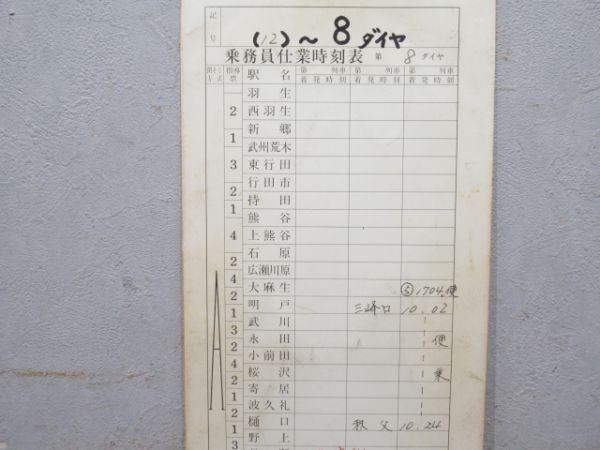 記号
(12)～8ダイヤ
乗務員仕業時刻表 第 8 ダイヤ
指導票 駅名 第 列車 第 列車 第 列車
方式 着発時刻 着発時刻 着発時刻
羽生
2 西羽生
新郷
1 武州荒木
3 東行田
行田市
2
1 持田
熊谷
4 上熊谷
石原
2 広瀬川原
4 大麻生 ⑤1704.便
2 明戸 三峰口 10.02
1 武川
3 永田 便
2 小前田
4 桜沢 乗
2 寄居
1 波久礼
2 樋口 秩父 10.24
1 野上
3